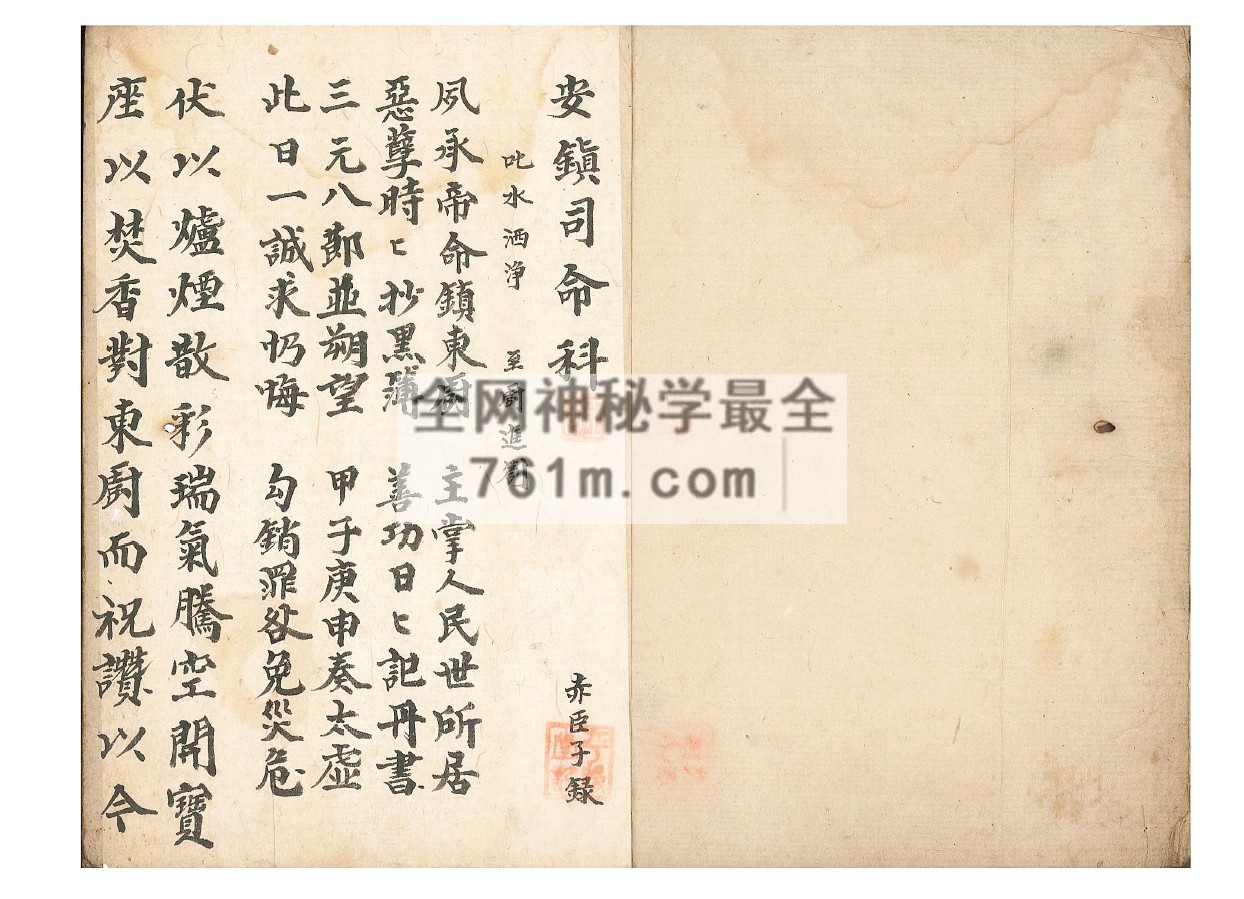 安鎮司命科
赤臣子録
叱水洒净 至厨進
夙承帝命鎮東厨 主掌人民世所居
惡孽時〻抄黒簿 善功日〻記丹書
三元八節並朔望 甲子庚申奏太虚
此日一誠求忏悔 勾銷罪咎免災危
伏以爐煙散彩瑞氣騰空開寶
座以焚香對東廚而祝讃以今
全网神秘学最全
761m.com